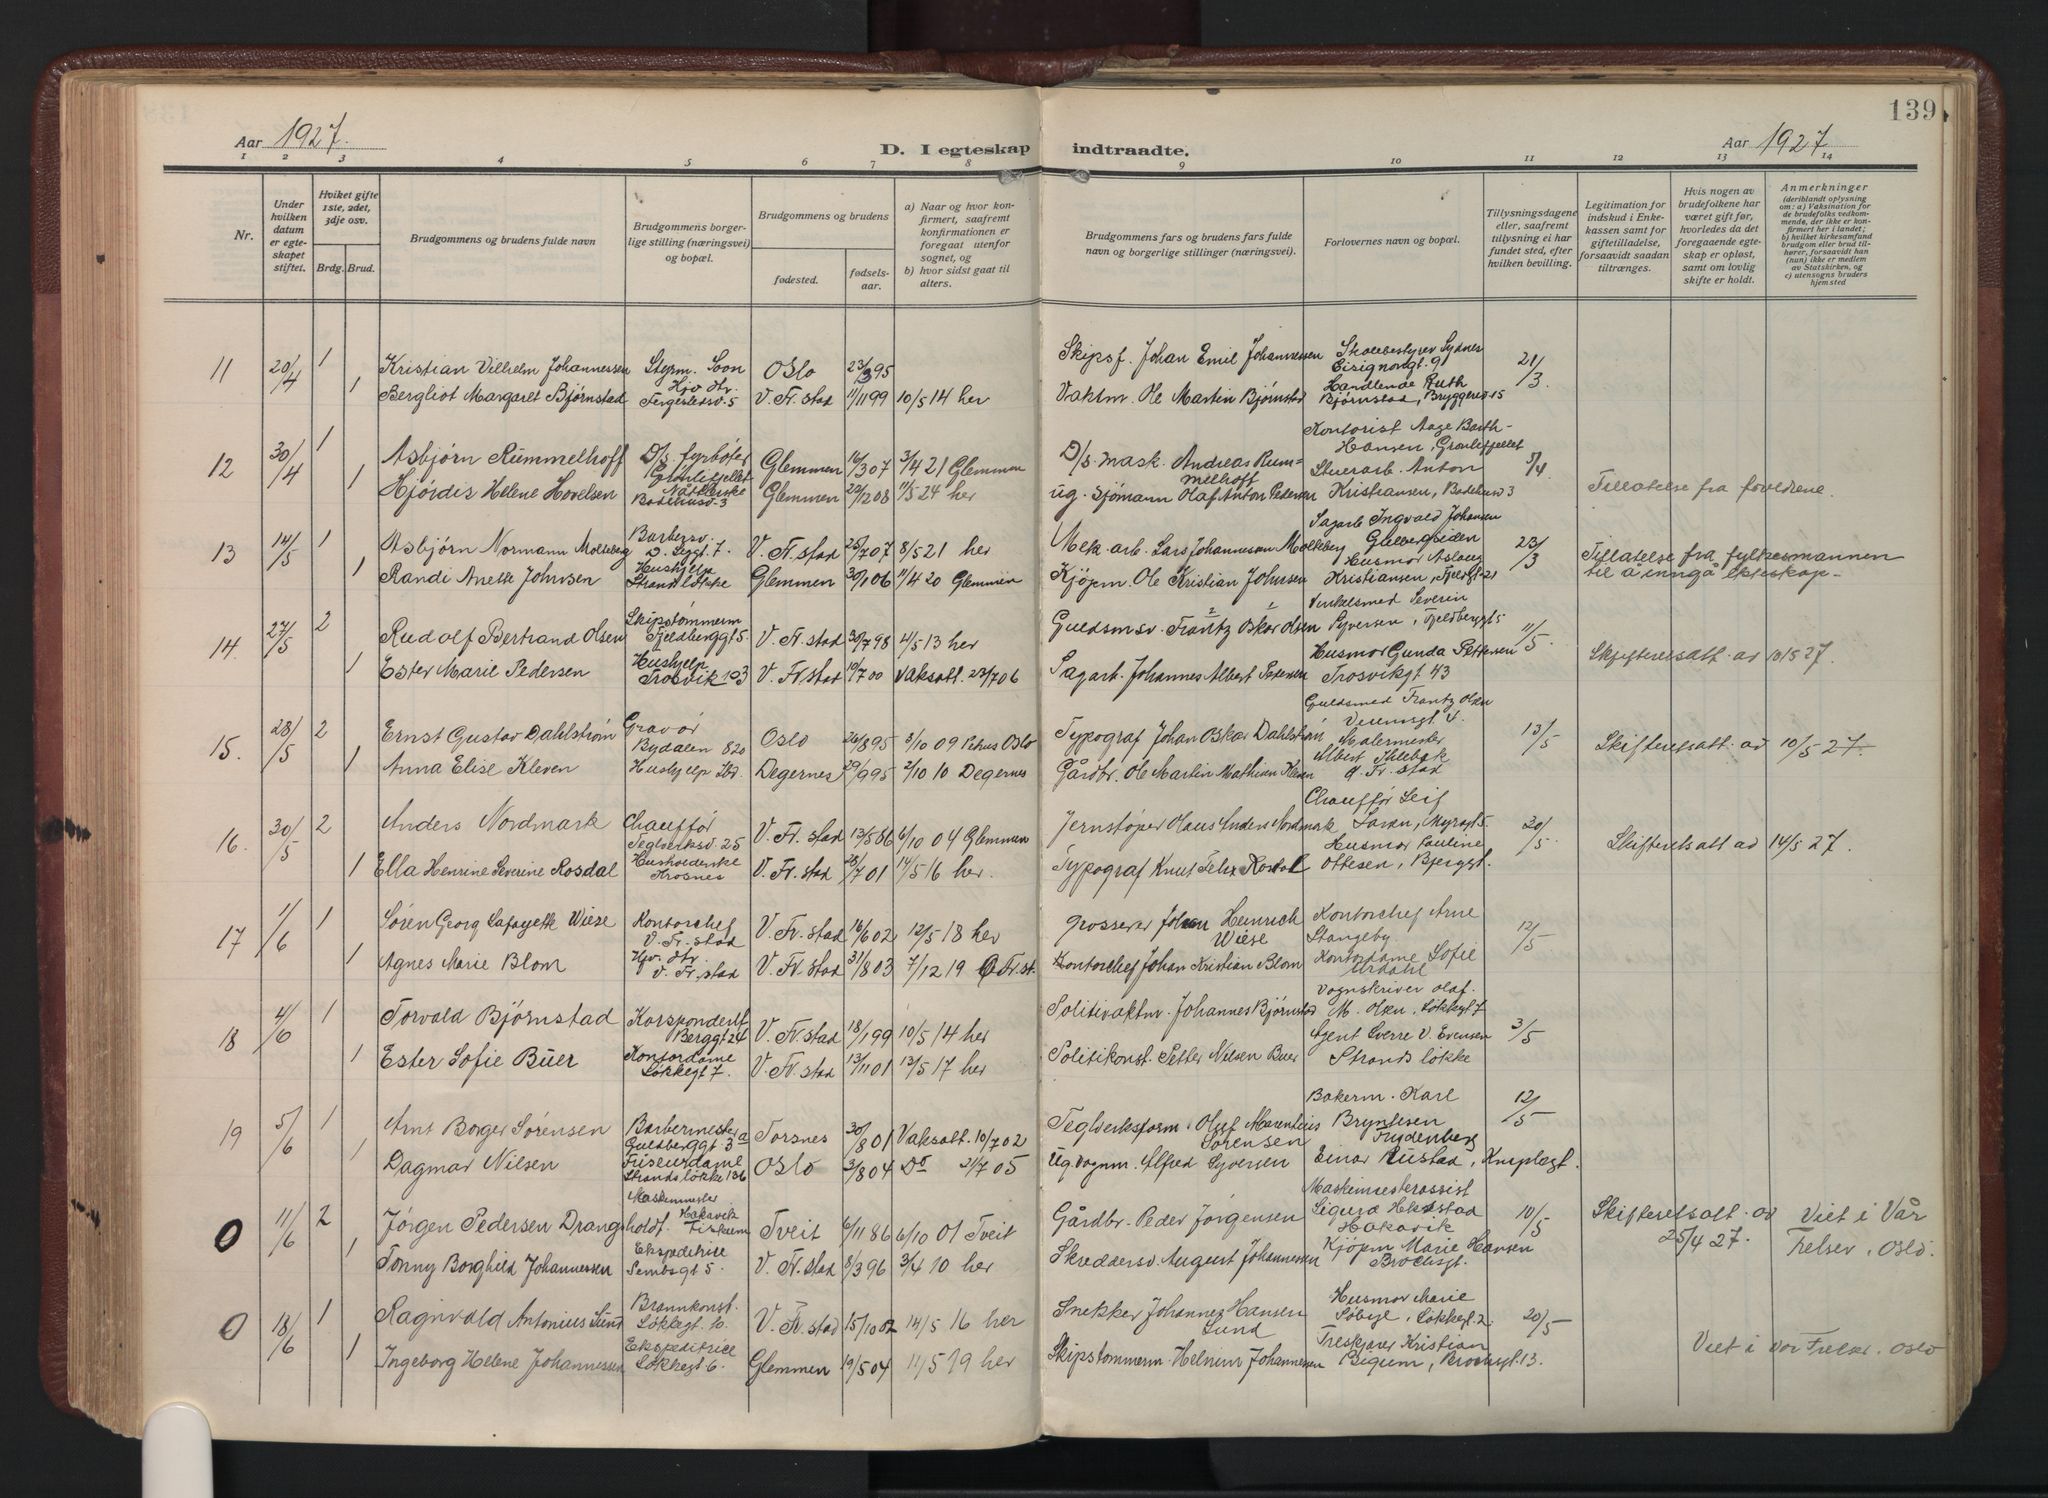 139
Aar 1927.
D. I egteskap indtraadte.
Aar 1927
1 2 3 4 5 6 7 8 9 10 11 12 13 14
Nr.
Under hvilken datum er egteskapet stiftet.
Hviket gifte 1ste, 2det, 3dje osv.
Brdg. Brud.
Brudgommens og brudens fulde navn
Brudgommens borgerlige stilling (næringsvei) og bopæl.
Brudgommens og brudens
fødested.
fødselsaar.
a) Naar og hvor konfirmert, saafremt konfirmationen er foregaat utenfor sognet, og
b) hvor sidst gaat til alters.
Brudgommens fars og brudens fars fulde navn og borgerlige stillinger (næringsvei).
Forlovernes navn og bopæl.
Tillysningsdagene eller, saafremt tillysning ei har fundet sted, efter hvilken bevilling.
Legitimation for indskud i Enkekassen samt for giftetilladelse, forsaavidt saadan tiltrænges.
Hvis nogen av brudefolkene har været gift før, hvorledes da det foregaaende egteskap er opløst, samt om lovlig skifte er holdt.
Anmerkninger
(deriblandt oplysning om: a) Vaksination for de brudefolks vedkommende, der ikke er konfirmert her i landet; b) hvilket kirkesamfund brudgom eller brud tilhører, forsaavidt han (hun) ikke er medlem av Statskirken, og c) utensogns bruders hjemsted
11 20/4 1 Kristian Vilhelm Johannessen Styrm. Soon Oslo 23/3 95 Skipsf. Johan Emil Johannessen Skolebestyrer Sydnes 21/3
1 Bergliot Margaret Bjørnstad Hjv. Htr. V. Fr. stad 11/11 99 10/5 14 her Vaktm. Ole Martin Bjørnstad Handlende Ruth Bjørnstad, Bryggeriv 15
12 30/4 1 Asbjørn Rummelhoff D/s. fyrbøter Grønlifjellet Glemmen 16/3 07 3/4 21 Glemmen D/s. mask. Andreas Rummelhoff Kontorist Aage Barth-Hansen, Grønlifjellet 3/4
1 Hjørdis Helene Hovelsen Bodehusv. 3 Glemmen 22/12 08 11/5 24 her ug. Sjømann Olaf Anton Pedersen Stuerarb. Anton Kristiansen, Bodehusv 3 Tillatelse fra foreldrene.
13 14/5 1 Asbjørn Normann Molteberg Barbersv. V. Fr. stad 25/7 07 8/5 21 her Mek. arb. Lars Johannessen Molteberg Sagarb. Ingvald Johansen Gulbergsiden 23/3
1 Randi Anette Johnsen Hushjelp Strandsløkke Glemmen 30/1 06 11/4 20 Glemmen Kjøpm. Ole Kristian Johnsen Husmor Aslaug Kristiansen, Fjeldgt. 21 Tillatelse fra fylkesmannen til å inngå ekteskap
14. 27/5 2 Rudolf Bertrand Olsen Skipstømmerm Fjeldberggt 5. V. Fr. stad 30/7 98 4/5 13 her Guldsmsv. Frantz Oskar Olsen Severin Syversen, Fjeldberggt 5 11/5
1 Ester Marie Pedersen Hushjelp Trosvik 103 V. Fr. stad 10/7 00 Vaksatt. 23/7 06 Sagarb. Johannes Albert Pedersen Husmor Gunda Pettersen Trosvikgt 43 Skifteretsatt. av 10/5 27.
15. 28/5 2 Ernst Gustav Dahlstrøm Gravør Bydalen 820 Oslo 26/8 95 3/10 09 Petrus Oslo Typograf Johan Oskar Dahlstrøm Guldsmed Frantz Olsen 13/5 Skifteretsatt. av 10/5 27.
1 Anna Elise Kleven Hushjelp Ibd. Degernes 29/9 95 2/10 10 Degernes Gårdbr. Ole Martin Mathisen Kleven Malermester Albert Fr. stad
16. 30/5 2 Anders Nordmark Chauffør Teglverksv. 25 V. Fr. stad 13/5 86 6/10 04 Glemmen Jernstøper Hans Anders Nordmark Chauffør Leif Larsen, Myragt 5. 20/5 Skifteretsatt av 14/5 27.
1 Ella Henrine Severine Rosdal Husholderske Krosnes V. Fr. stad 28/7 01 14/5 16 her. Typograf Knut Felix Rosdal Husmor Pauline Ottesen, Bjerggt.
17 1/6 1 Søren Georg Lafayette Wiese Kontorchef V. Fr. stad V. Fr. stad 16/6 02 12/5 18 her Grosserer Johan Heinrich Wiese Kontorchef Arne Stangeby 12/5
1 Agnes Marie Blom Hjv. Htr. V. Fr. stad V. Fr. stad 31/8 03 7/12 19 G Fr. st. Kontorchef Johan Kristian Blom Kontordame Sofie Urdahl
18 4/6 1 Torvald Bjørnstad Korspondent Berggt 24 V. Fr. stad 18/1 99 10/5 14 her Politivaktm. Johannes Bjørnstad Vognskriver Olaf M. Olsen, Løkkegt 7 3/5
1 Ester Sofie Buer Kontordame Løkkegt 7. V. Fr. stad 13/11 01 13/5 17 her Politikonst. Petter Nilsen Buer Agent Sverre V. Evensen Strandsløkke
19 5/6 1 Arnt Borger Sørensen Barbermester Guldberggt. 3 a Torsnes 30/8 01 Vaksatt. 10/7 02 Teglverksform. Oluf Marentius Sørensen Bakerm. Karl Bryntesen Frydenberg 12/5
1 Dagmar Nilsen Friseurdame Strandsløkke 136 Oslo 3/8 04 Do 21/7 05 Ug. vognm. Alfred Syversen Einar Rustad, Kniplegt.
0 11/6 2 Jørgen Pedersen Drangsholdt. Maskinmester Hakavik Tveit 6/11 86 6/10 01 Tveit Gårdbr. Peder Jørgensen Maskinmesterassist Sigurd Hakavik 10/5 Skifteretsatt. av 25/4 27. Viet i Vår Frelser, Oslo.
1 Tonny Borghild Johannessen Ekspeditrise Sembsgt 5. V. Fr. stad 8/3 96 3/4 10 her Skreddersv. August Johannessen Kjøpm. Marie Hansen Brochsgt.
0 18/6 1 Ragnvald Antonius Lund Brannkonst. Løkkegt. 10. V. Fr. stad 15/10 02 14/5 16 her Snekker Johannes Hansen Lund Husmor Marie Løkkegt. 2. 20/5
1 Ingeborg Helene Johannessen Ekspeditrice Løkkegt 6. Glemmen 19/5 04 11/5 19 her Skipstømmerm. Helmin Johannessen Treskjærer Kristian Bigum, Brochsgt. 13. Viet i vor Frelser. Oslo